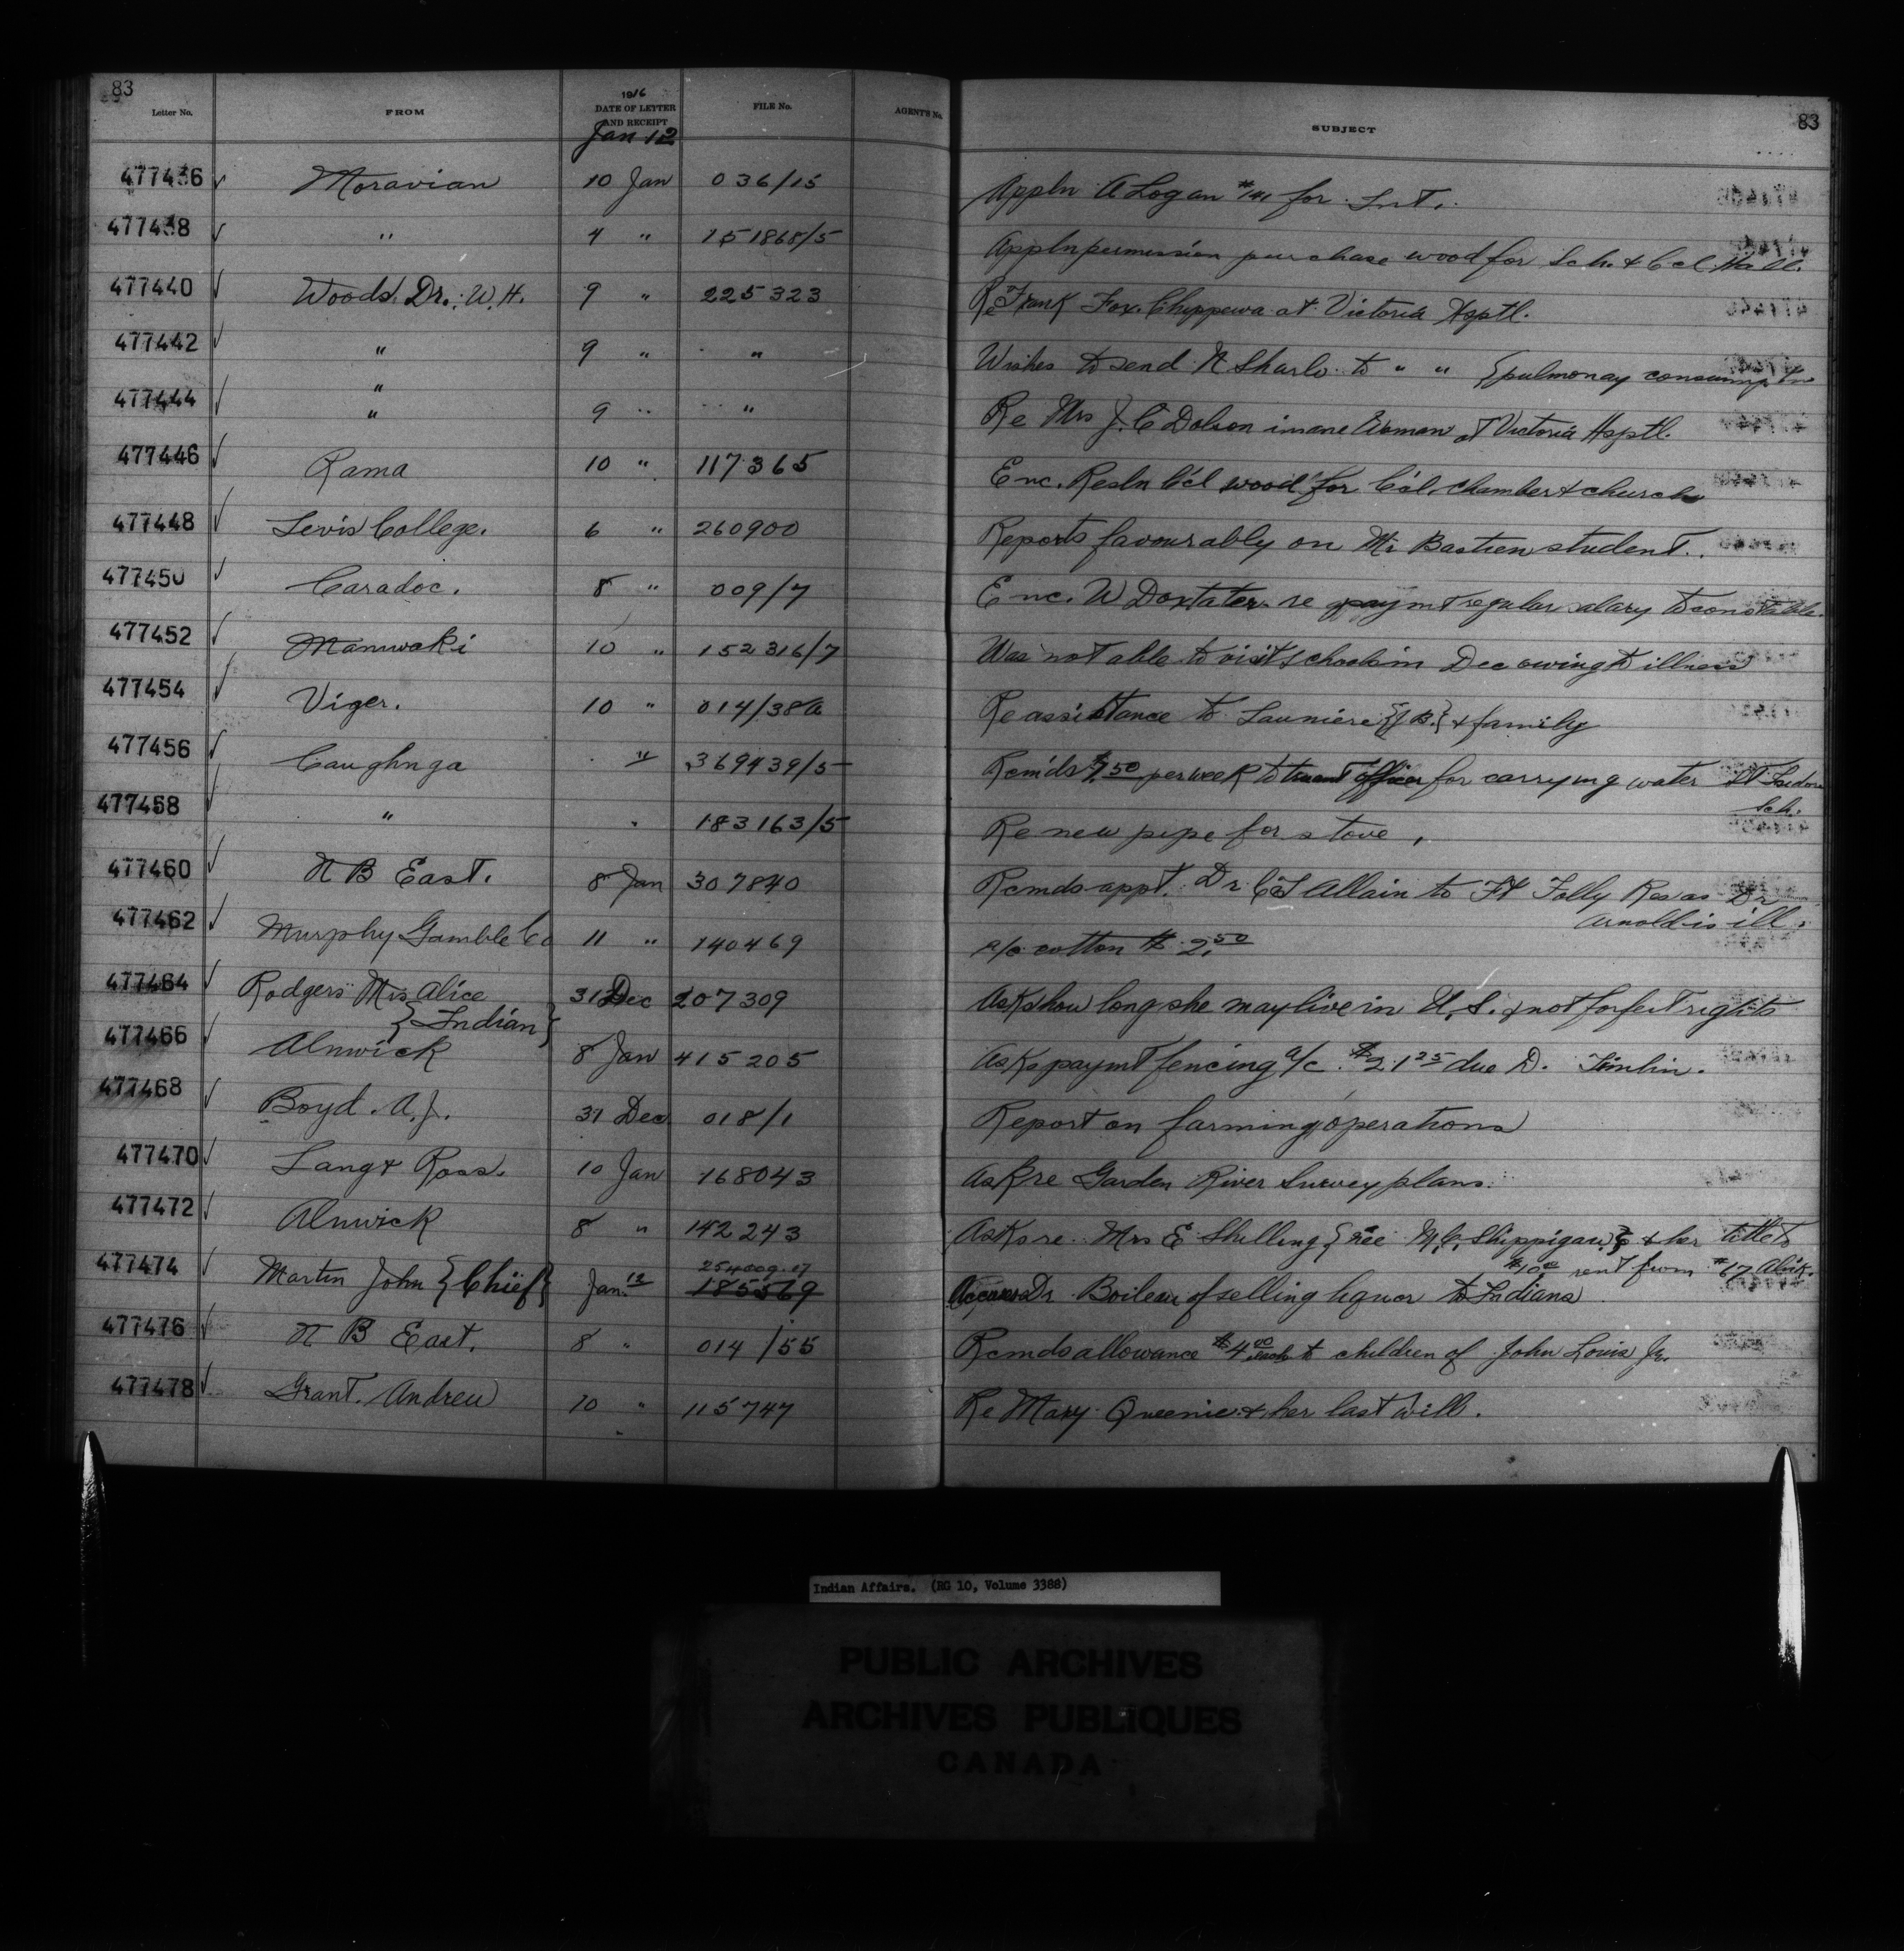 83
Letter No. FROM 1916 DATE OF LETTER AND RECEIPT FILE No. AGENT'S No. SUBJECT 83
Jan 12
477436 Moravian 10 Jan 036/15 Appln A Logan #141 for Int.
477438 " 4 " 151868/5 Appln permission purchase wood for Sch. & Ccl Hall.
477440 Woods Dr. W.H. 9 " 225323 Re Frank Fox. Chippewa at Victoria Hsptl.
477442 " 9 " " Wishes to send N Sharlo to " " {pulmonay consumptn
477444 " " 9 " " Re Mrs J. C Dolson insane Woman at Victoria Hsptl.
477446 Rama 10 " 117365 Enc. Resln Ccl wood for Ccl. chamber & church
477448 Levis College. 6 " 260900 Reports favourably on Mr Bastien student.
477450 Caradoc. 8 " 009/7 Enc. W Doxtater re paymt regular salary to constable.
477452 Maniwaki 10 " 152316/7 Was not able to visit schools in Dec owing to illness
477454 Viger. 10 " 014/38a Re assistance to Launiere {J B.} & family
477456 Caughnga " 369439/5 Rcmds $ 50 per week to truant officer for carrying water St Isidore
Sch.
477458 " 183163/5 Re new pipe for stove,
477460 N B East. 8 Jan 307840 Rcmds appt. Dr Allain to Ft Folly Res as Dr
Arnold is ill.
477462 Murphy Gamble Co 11 " 140469 a/c cotton $ 2.50
477464 Rodgers Mrs Alice 31 Dec 207309 Asks how long she may live in U.S. & not forfeit rights
{Indian}
477466 Alnwick 8 Jan 415205 Asks paymt fencing a/c. $21 25 due D. Timlin.
477468 Boyd. A.J. 31 Dec 018/1 Report on farming operations
477470 Lang & Ross. 10 Jan 168043 Ask re Garden River Survey plans.
477472 Alnwick 8 " 142243 Asks re. Mrs E Shilling {nee M, C, Shippigaw} & her title to
$10 00 rent from #67 Alnk.
477474 Martin John {Chief} Jan. 12 254009-17 185569 Accuses Dr Boileau of selling liquor to Indians
477476 N B East. 8 " 014/55 Rcmds allowance $4 00 each to children of John Louis Jr.
477478 Grant. Andrew 10 " 115747 Re Mary Queenie & her last will.
Indian Affairs. (RG 10, Volume 3388)
PUBLIC ARCHIVES
ARCHIVES PUBLIQUES
CANADA